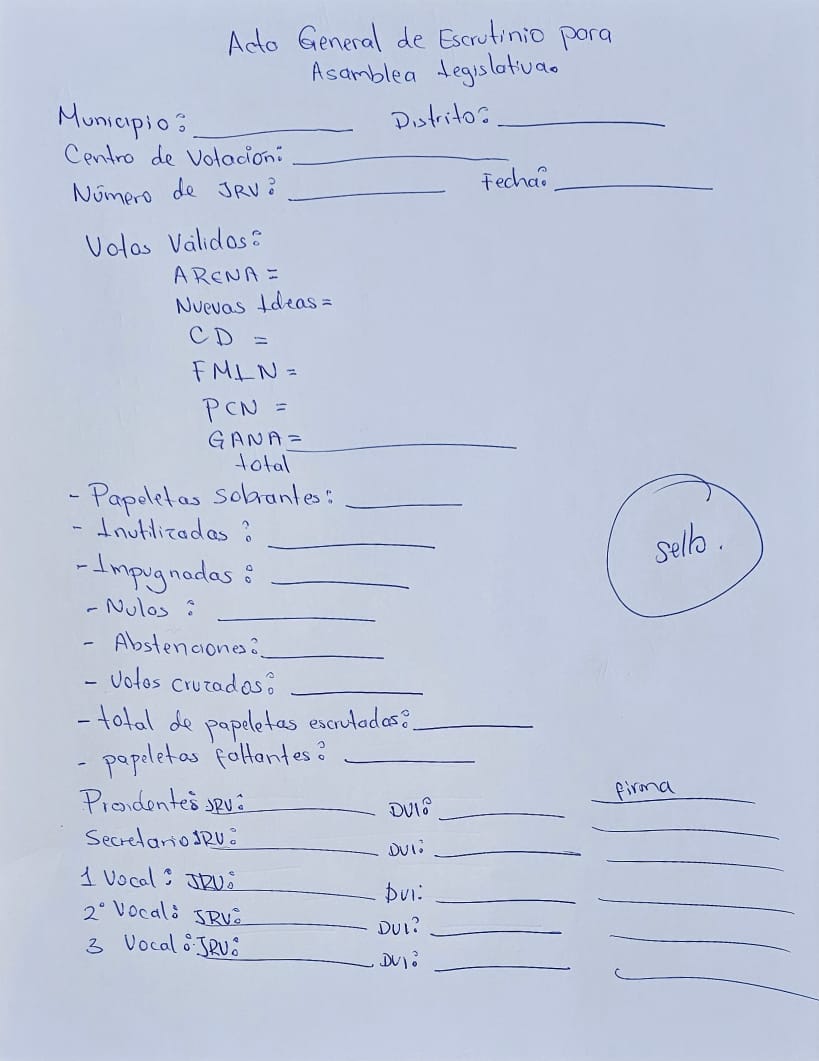 Acta General de Escrutinio para
Asamblea Legislativa.
Municipio: ____________ Distrito: ____________
Centro de Votación: ____________
Número de JRV: ____________ Fecha: ____________
Votos Válidos:
ARENA =
Nuevas Ideas =
CD =
FMLN =
PCN =
GANA = ____________
total
- Papeletas sobrantes: ____________
- Inutilizadas: ____________
- Impugnadas: ____________
- Nulos: ____________
- Abstenciones: ____________
- Votos cruzados: ____________
- total de papeletas escrutadas: ____________
- papeletas faltantes: ____________
sello.
firma
Presidente: JRV: ____________ DUI: ____________
Secretario JRV: ____________ DUI: ____________
1 Vocal: JRV: ____________ DUI: ____________
2° Vocal: JRV: ____________ DUI: ____________
3 Vocal: JRV: ____________ DUI: ____________